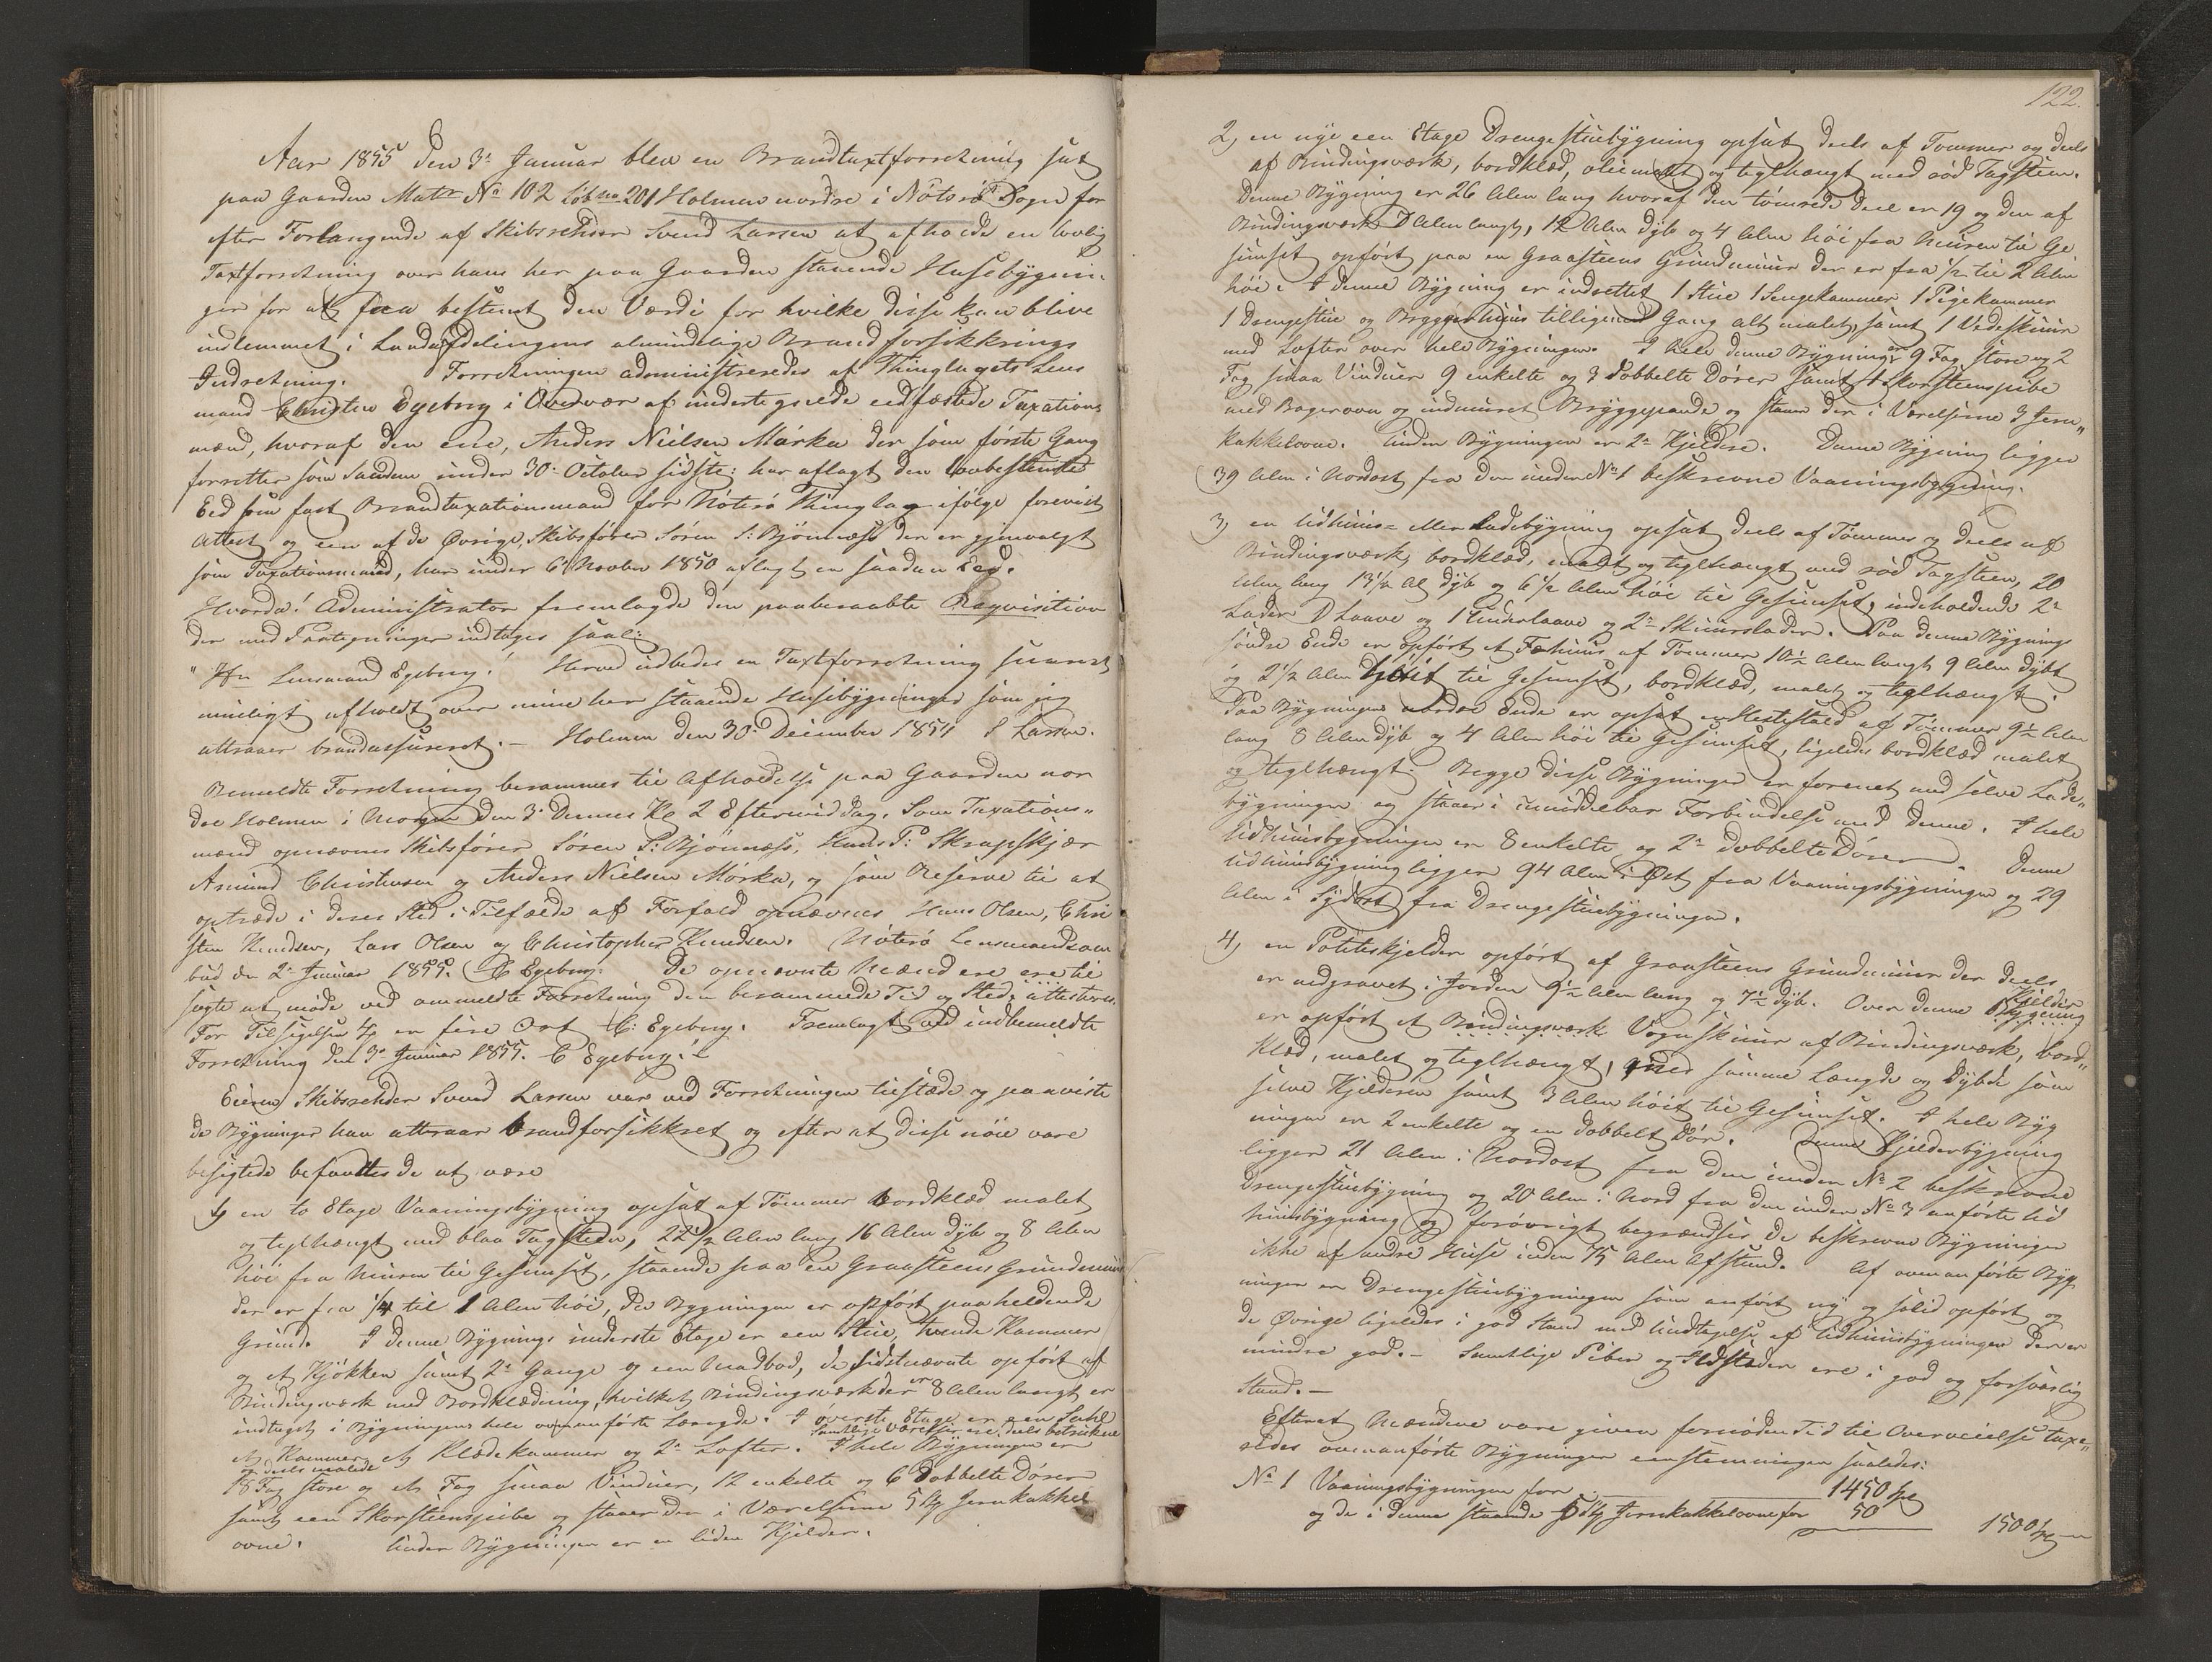 Aar 1855 den 3die Januar blev en Brandtaxtforretning sat
paa Gaarden Matr No 102 Løb no 201 Holmen nordre i Nøterø Sogn for
efter Forlangende af Skibsrehder Svend Larsen at afholde en lovlig
Taxtforretning over hans her paa Gaarden staaende Husebygnin-
ger for at faa bestemt den Værdi for hvilke disse kan blive
indlemmet i Landafdelingens almindelige Brandforsikkrings
Indretning. Forretningen administreredes af Thinglagets Lens
mand Christen Egeberg i Overvær af undertegnede eedfæstede Taxations
mænd, hvoraf den ene, Anders Nielsen Mørka der som første Gang
forretter som saadan under 30te October sidste har aflagt den lovbestemte
Eed som fast Brandtaxationsmand for Nøterø Thinglag ifølge forevist
Attest og een af de Øvrige, Skibsfører Søren S: Bjønnæss der er gjenvalgt
som Taxationsmand, har under 6te Novber 1850 aflagt en saadan Eed.
Hvorda! Administrator fremlagde den paaberaabte Reqvisition
der med Paategninger indtages saal:
"Hr Lensmand Egeberg! Herved udbedes en Taxtforretning snarest
mueligt afholdt over mine her staaende Husebygninger som jeg
attraaer brandassureret. – Holmen den 30te December 1854 S Larsen.
Bemeldte Forretning berammes til Afholdelse paa Gaarden nor
dre Holmen i Morgen den 3die Dennes Kl 2 Eftermiddag. Som Taxations-
mænd opnævnes Skibsfører Søren S: Bjønnæss, Hans P: Skrapskjær
Amund Christensen og Anders Nielsen Mørka, og som Reserve til at
optræde i deres Sted i Tilfælde af Forfald opnævnes Hans Olsen, Chri
sten Knudsen, Lars Olsen og Christopher Knudsen. Nøterø Lensmandsom
bud den 2den Januar 1855. C Egeberg. De opnævnte Mænd ere til
sagte at møde ved ommeldte Forretning den berammede Tid og Sted, attesteres.
For Tilsigelsen er fire Ort C: Egeberg. Fremlagt ved indbemeldte
Forretning den 3die Januar 1855. C Egeberg."
Eieren Skibsrehder Svend Larsen var ved Forretningen tilstæde og paaviste
de Bygninger han attraar brandforsikkret og efter at disse nøie vare
besigtede befandtes de at være
1, en to Etage Vaaningsbygning opsat af Tømmer bordklæd malet
og teglhængt med blaa Tagsteen, 22 1/2 Alen lang 16 Alen dyb og 8 Alen
høi fra Muren til Gesimset, staaende paa en Graasteens Grundmuur
der er fra 1/4 til 1 Alen høi, da Bygningen er opført paa heldende
Grund. I denne Bygnings underste Etage er een Stue, tvende Kammer
og et Kjøkken samt 2de Gange og een Madbod, de sidstnævnte opført af
Bindingsværk med Bordklædning, hvilket Bindingsværk der er 8 Alen langt er
indtaget i Bygningens hele ovenanførte Længde. I øverste Etage er een Sahl
samtlige Værelser ere deels betrukne
et Kammer et Klædekammer og 2de Lofter. I hele Bygningen er
og deels malede
18 Fag store og et Fag smaa Vinduer, 12 enkelte og 6 dobbelte Dører
samt een Skorsteenspibe og staaer der i Værelserne 5 Stk Jernkakkel
ovne. Under Bygningen er en liden Kjelder.
122.
2, en nye een Etage Drengestuebygning opsat deels af Tømmer og deels
af Bindingsværk, bordklæd, oliemalt og teglhængt med rød Tagsteen.
Denne Bygning er 26 Alen lang hvoraf den tømrede Deel er 19 og den af
Bindingsværk 7 Alen langt, 12 Alen dyb og 4 Alen høi fra Muren til Ge
simset opført paa en Graasteens Grundmuur der er fra 1/2 til 2 Alen
høi. I denne Bygning er indrettet 1 Stue 1 Sengekammer 1 Pigekammer
1 Drengestue og Bryggerhuus tilligemed Gang alt malet, samt 1 Vedeskuur
med Lofter over hele Bygningen. I hele denne Bygning er 9 Fag store og 2
Fag smaa Vinduer 9 enkelte og 3 dobbelte Dører samt 1 Skorsteenspibe
med Bagerovn og indmuret Bryggepande og staar der i Værelserne 3 Jern-
kakkelovne. Under Bygningen er 2de Kjeldere. Denne Bygning ligger
39 Alen i Nordost fra den under No 1 beskrevne Vaaningsbygning.
3, en Udhuus- eller Ladebygning opsat deels af Tømmer og deels af
Bindingsværk, bordklæd, malet og teglhængt med rød Tagsteen, 20
Alen lang 13 1/2 Al dyb og 6 1/2 Alen høi til Gesimset, indeholdende 2de
Lader 1 Laave og 1 Underlaave og 2de Skuurslader. Paa denne Bygnings
søndre Ende er opført et Fæhuus af Tømmer 10 1/2 Alen langt 9 Alen dybt
og 2 1/2 Alen høit til Gesimset, bordklæd, malet og teglhængt.
Paa Bygningens nordre Ende er opsat en Hestestald af Tømmer 9 1/2 Alen
lang 8 Alen dyb og 4 Alen høi til Gesimset, ligeledes bordklæd malet
og teglhængt. Begge disse Bygninger er forenet med selve Lade-
bygningen og staaer i umiddelbar Forbindelse med denne. I hele
Udhuusbygningen er 8 enkelte og 2de dobbelte Dører. Denne
Udhuusbygning ligger 94 Alen i Øst fra Vaaningsbygningen og 29
Alen i Sydost fra Drengestuebygningen.
4, en Potetskjelder opført af Graasteens Grundmuur der deels
er nedgravet i Jorden 9 1/2 Alen lang og 7 1/2 dyb. Over denne Kjelder Bygning
er opført et Bindingsværk Vognskuur af Bindingsværk, bord-
klæd, malet og teglhængt, med samme Længde og Dybde som
selve Kjelderen samt 3 Alen høit til Gesimset. I hele Byg
ningen er 2 enkelte og en dobbelt Dør. Denne Kjelderbygning
ligger 21 Alen i Nordost fra den under No 2 beskrevne
Drengestuebygning og 20 Alen i Nord fra den under No 3 anførte Ud
huusbygning og forøvrigt begrændses de beskrevne Bygninger
ikke af andre Huse inden 75 Alen Afstand. Af ovenanførte Byg-
ninger er Drengestuebygningen som anført ny og solid opført og
de Øvrige ligeledes i god Stand med Undtagelse af Udhuusbygningen der er
mindre god. – Samtlige Piber og Ildsteder ere i god og forsvarlig
Stand. –
Efterat Mændene vare given fornøden Tid til Overveielse taxe-
redes ovenanførte Bygninger eenstemmigen saaledes:
No 1 Vaaningsbygningen for 1450 Spd
og de i denne staaende 5 Stk Jernkakkelovne for 50 1500 Spd